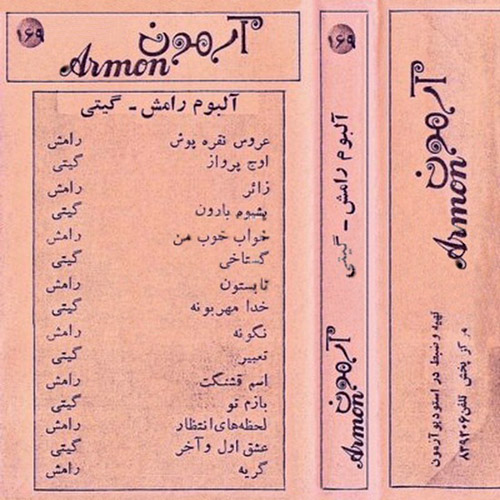 ۱۶۹
آرمون
Armon
آلبوم رامش - گیتی
عروس نقره پوش رامش
اوج پرواز گیتی
زائر رامش
پشیوم بارون گیتی
خواب خوب من رامش
گستاخی گیتی
تابستون رامش
خدا مهربونه گیتی
نگونه رامش
تعبیر گیتی
اسم قشنگت رامش
بازم تو گیتی
لحظه‌های انتظار رامش
عشق اول و آخر گیتی
گریه رامش
۱۶۹
آلبوم رامش - گیتی
آرمون
Armon
آرمون
Armon
تهیه و ضبط در استودیو آرمون
مرکز پخش تلفن ۸۳۹۲۰۶